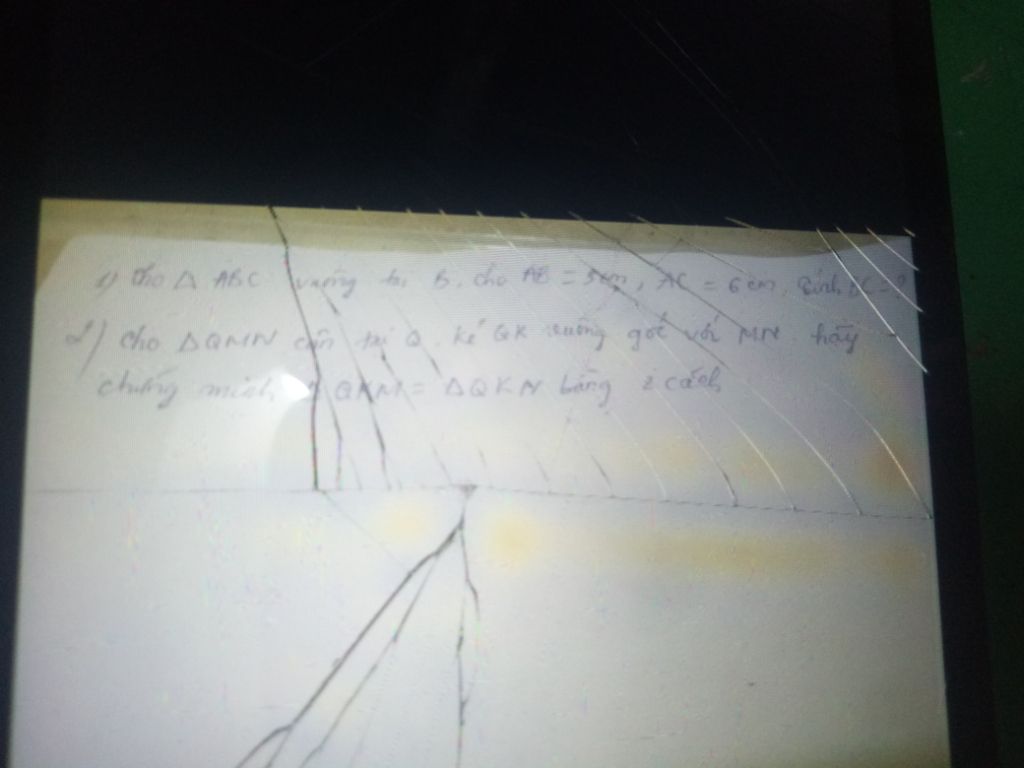 1) Cho Δ ABC vuông tại B. cho AB = 5cm, AC = 6cm. Tính BC = ?
2) Cho ΔQMN cân tại Q. kẻ QK vuông góc với MN. hãy
chứng minh QKM = ΔQKN bằng 2 cách